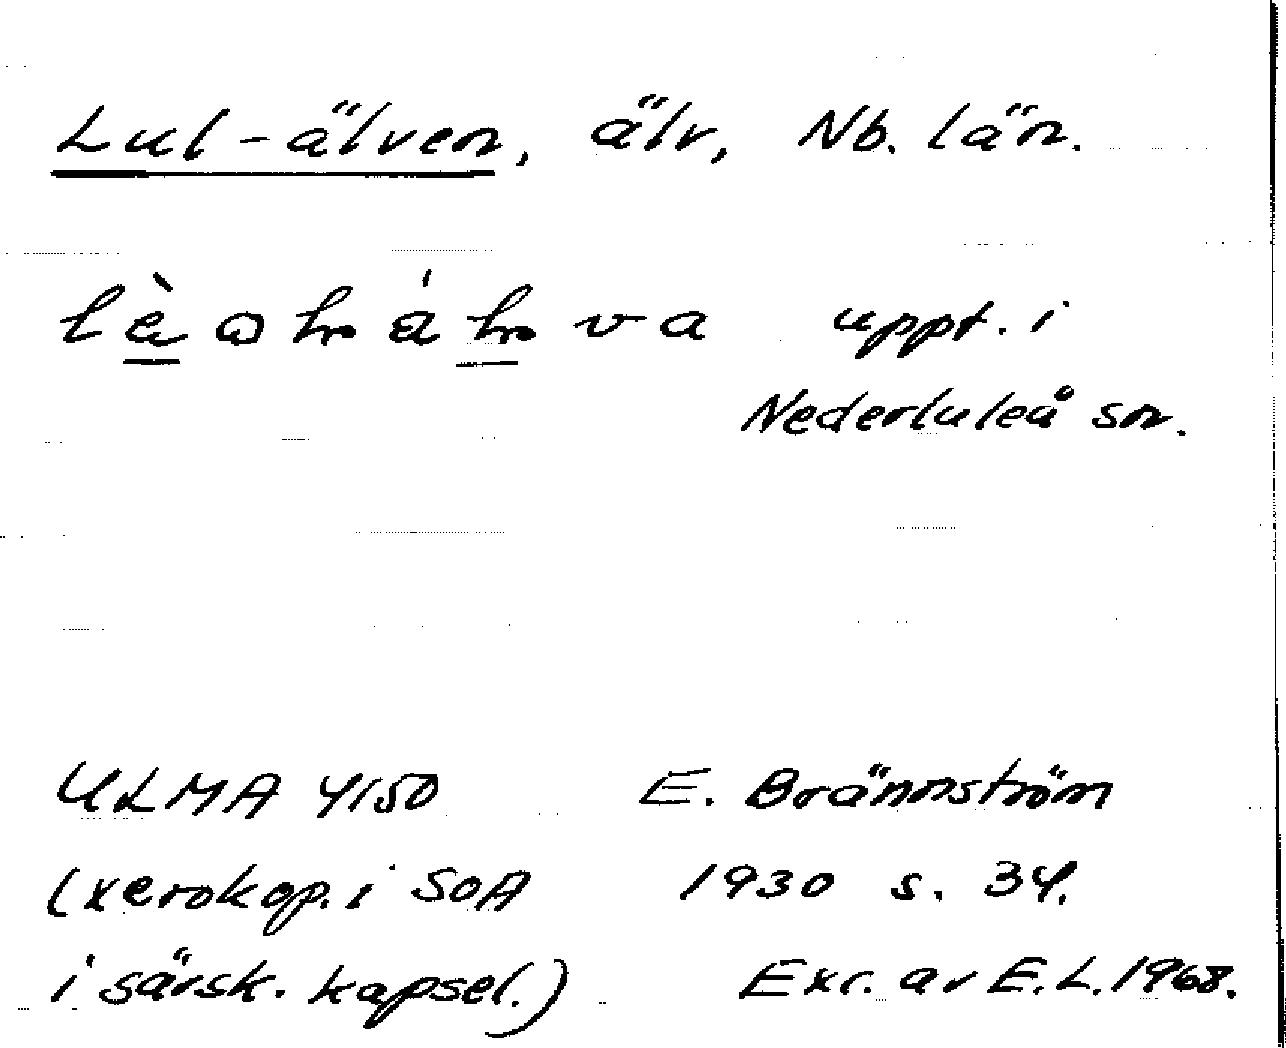 Lul-älven, älv, Nb. län.
uppt. i
Nederluleå sn.
ULMA 4150 E. Brännström
(xerokop. i SOA 1930 s. 34.
i särsk. kapsel.) Exc. av E.L. 1968.